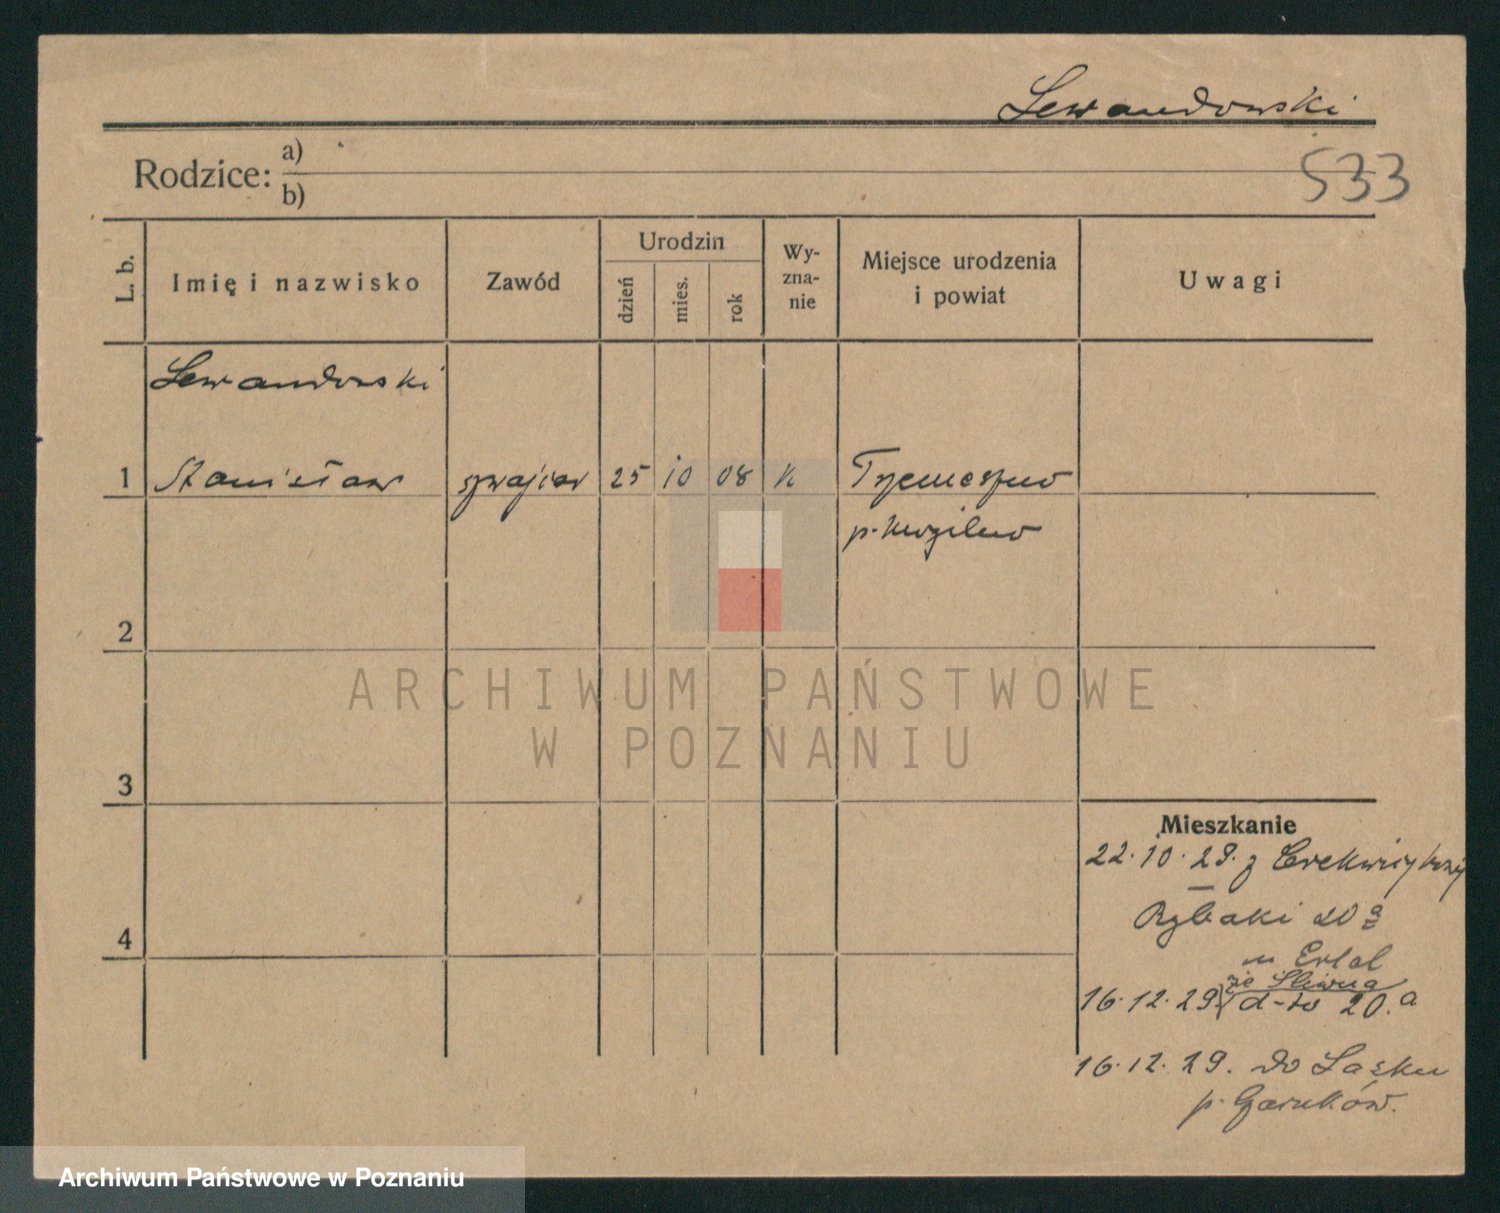 Lewandowski
533
Rodzice: a)
b)
L. b.
Imię i nazwisko
Zawód
Urodzin
dzień
mies.
rok
Wy-
zna-
nie
Miejsce urodzenia
i powiat
Uwagi
Lewandowski
1 Stanisław szwajcar 25 10 08 k Trzemeszno
p. Mogilno
2
3
4
Mieszkanie
22. 10. 29. z
Rybaki 20 a
u Ertel
ze Śliwna
16. 12. 29. d-to 20. a
16. 12. 29. do Lasku
p.
ARCHIWUM PAŃSTWOWE
W POZNANIU
Archiwum Państwowe w Poznaniu